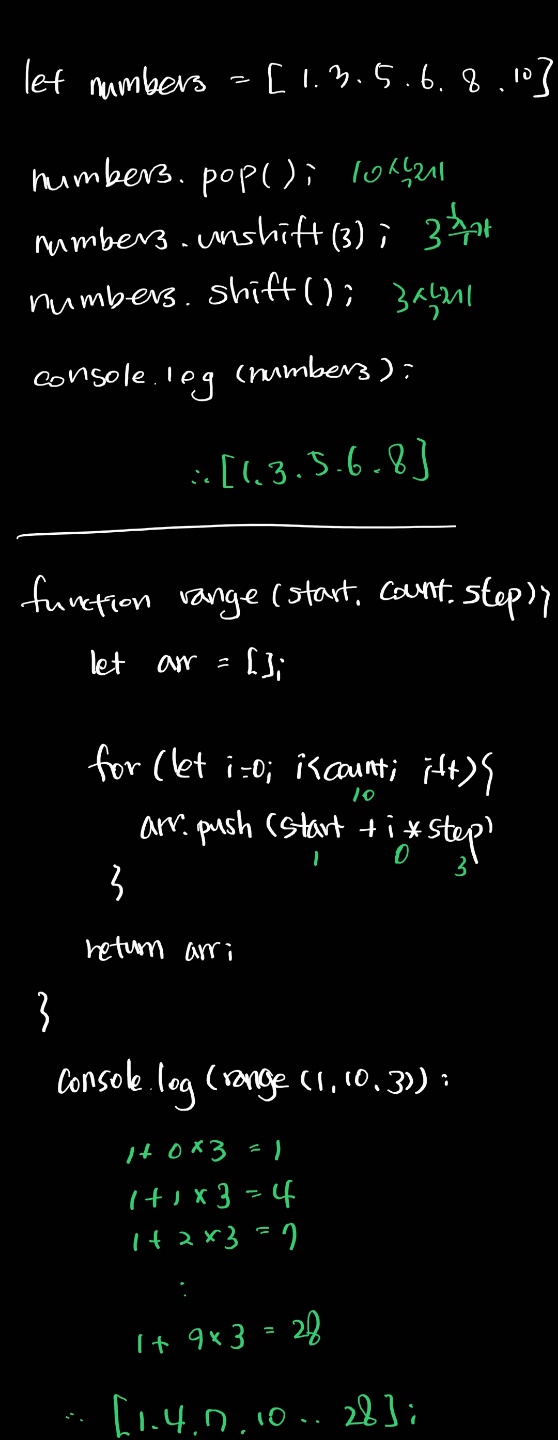 let numbers = [ 1. 3. 5. 6. 8. 10]
numbers. pop(); 10삭제
numbers. unshift(3); 3추가
numbers. shift(); 3삭제
console.log (numbers);
∴ [1. 3. 5. 6. 8]
function range (start. count. step){
let arr = [];
for (let i=0; i<count; i++){
10
arr. push (start + i * step)
1 0 3
}
return arr;
}
console.log (range (1. 10. 3));
1+ 0×3 = 1
1+1×3 = 4
1+2×3 = 7
:
1+ 9×3 = 28
∴ [1. 4. 7. 10 .. 28];